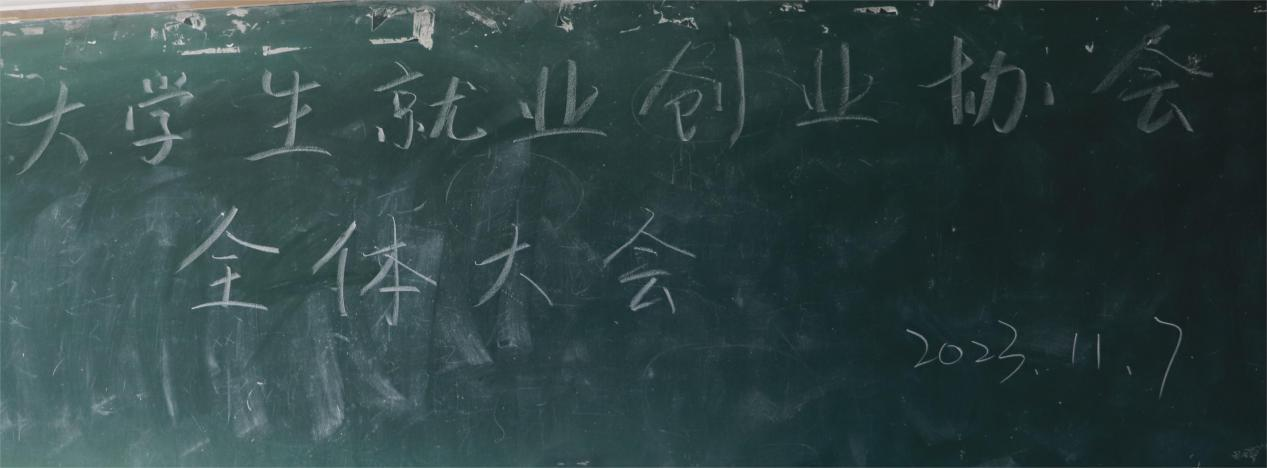 大学生就业创业协会
全体大会
2023.11.7